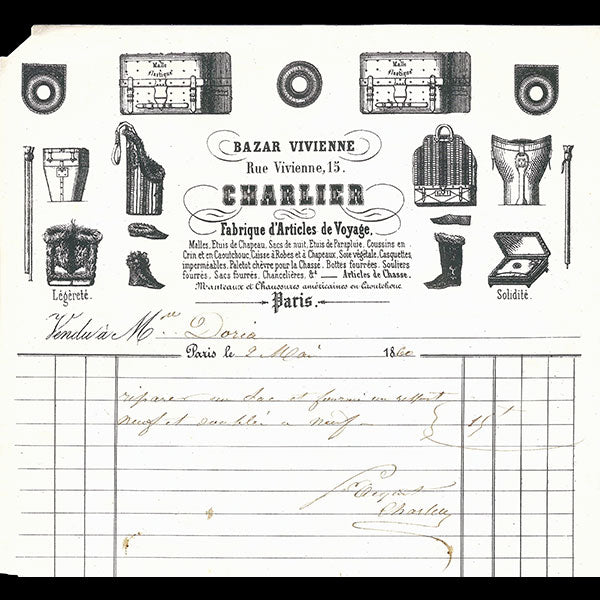 Malle
Elastique
Malle
Elastique
BAZAR VIVIENNE
Rue Vivienne, 15.
CHARLIER
Fabrique d'Articles de Voyage,
Malles, Etuis de Chapeau, Sacs de nuit, Etuis de Parapluie, Coussins en
Crin et en Caoutchouc, Caisse à Robes et à Chapeaux, Soie végétale, Casquettes,
imperméables, Paletot chèvre pour la Chasse. Bottes fourrées. Souliers
fourrés. Sacs fourrés. Chancelières, &a — Articles de Chasse.
Manteaux et Chaussures américaines en Caoutchouc
Paris.
Légèreté.
Solidité.
Vendu à Mme Doria
Paris le 2 Mai 1860
réparer un sac et fourni un ressort
neuf et doublé a neuf — 15 f
Charlier